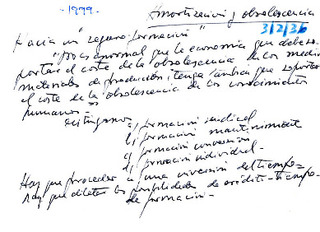 - 1999. Amortización y obsolescencia
3/2/36
Hacia un "seguro formación"
"¿Es anormal que la economía que debe so-
portar el coste de la obsolescencia de los medios
materiales de producción, tenga también que soportar
el coste de la obsolescencia de los conocimientos
humanos"-
distingamos a) formación sindical
b) formación mantenimiento
c) formación conversión
d) formación individual-
Hay que proceder a una inversión del tiempo-
hay que dilatar las posibilidades de crédito-tiempo-
de formación-